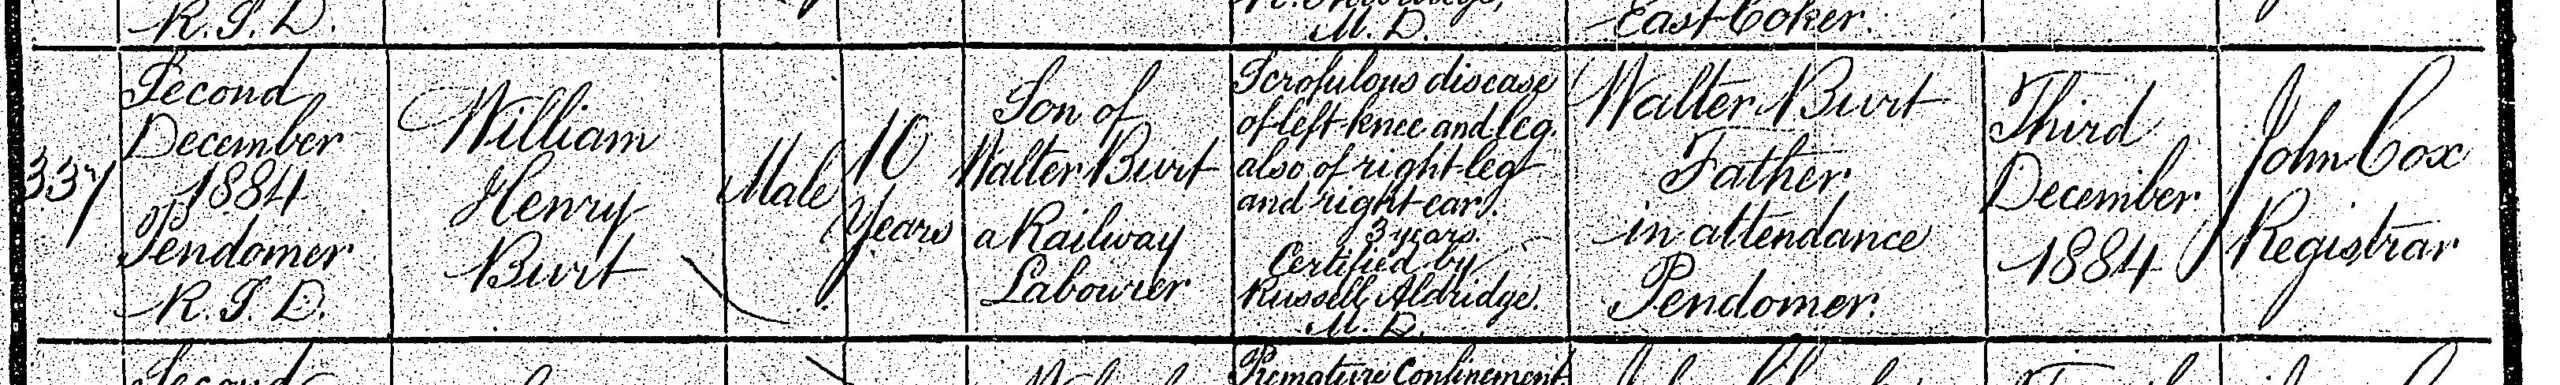 R. S. D.
M. D.
East Coker.
337
Second
December
1884
Pendomer
R. S. D.
William
Henry
Burt
Male
10
Years
Son of
Walter Burt
a Railway
Labourer
Scrofulous disease
of left knee and leg.
also of right leg
and right ear.
3 years.
Certified by
Russell Aldridge.
M. D.
Walter Burt
Father
in attendance
Pendomer.
Third
December
1884
John Cox
Registrar
Second
Premature Confinement